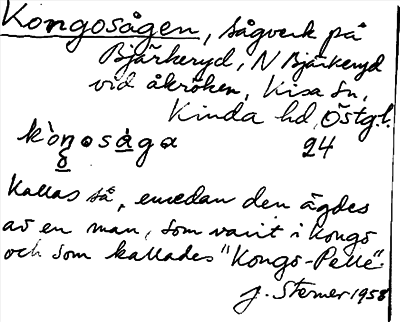 Kongosågen, sågverk på
Bjärkeryd, N Bjärkeryd
vid åkröken, Kisa sn,
Kinda hd, Östg.l.
24
kàŋosåga
Kallas så, emedan den ägdes
av en man, som varit i Kongo
och som kallades "Kongo-Pelle".
J. Sterner 1958